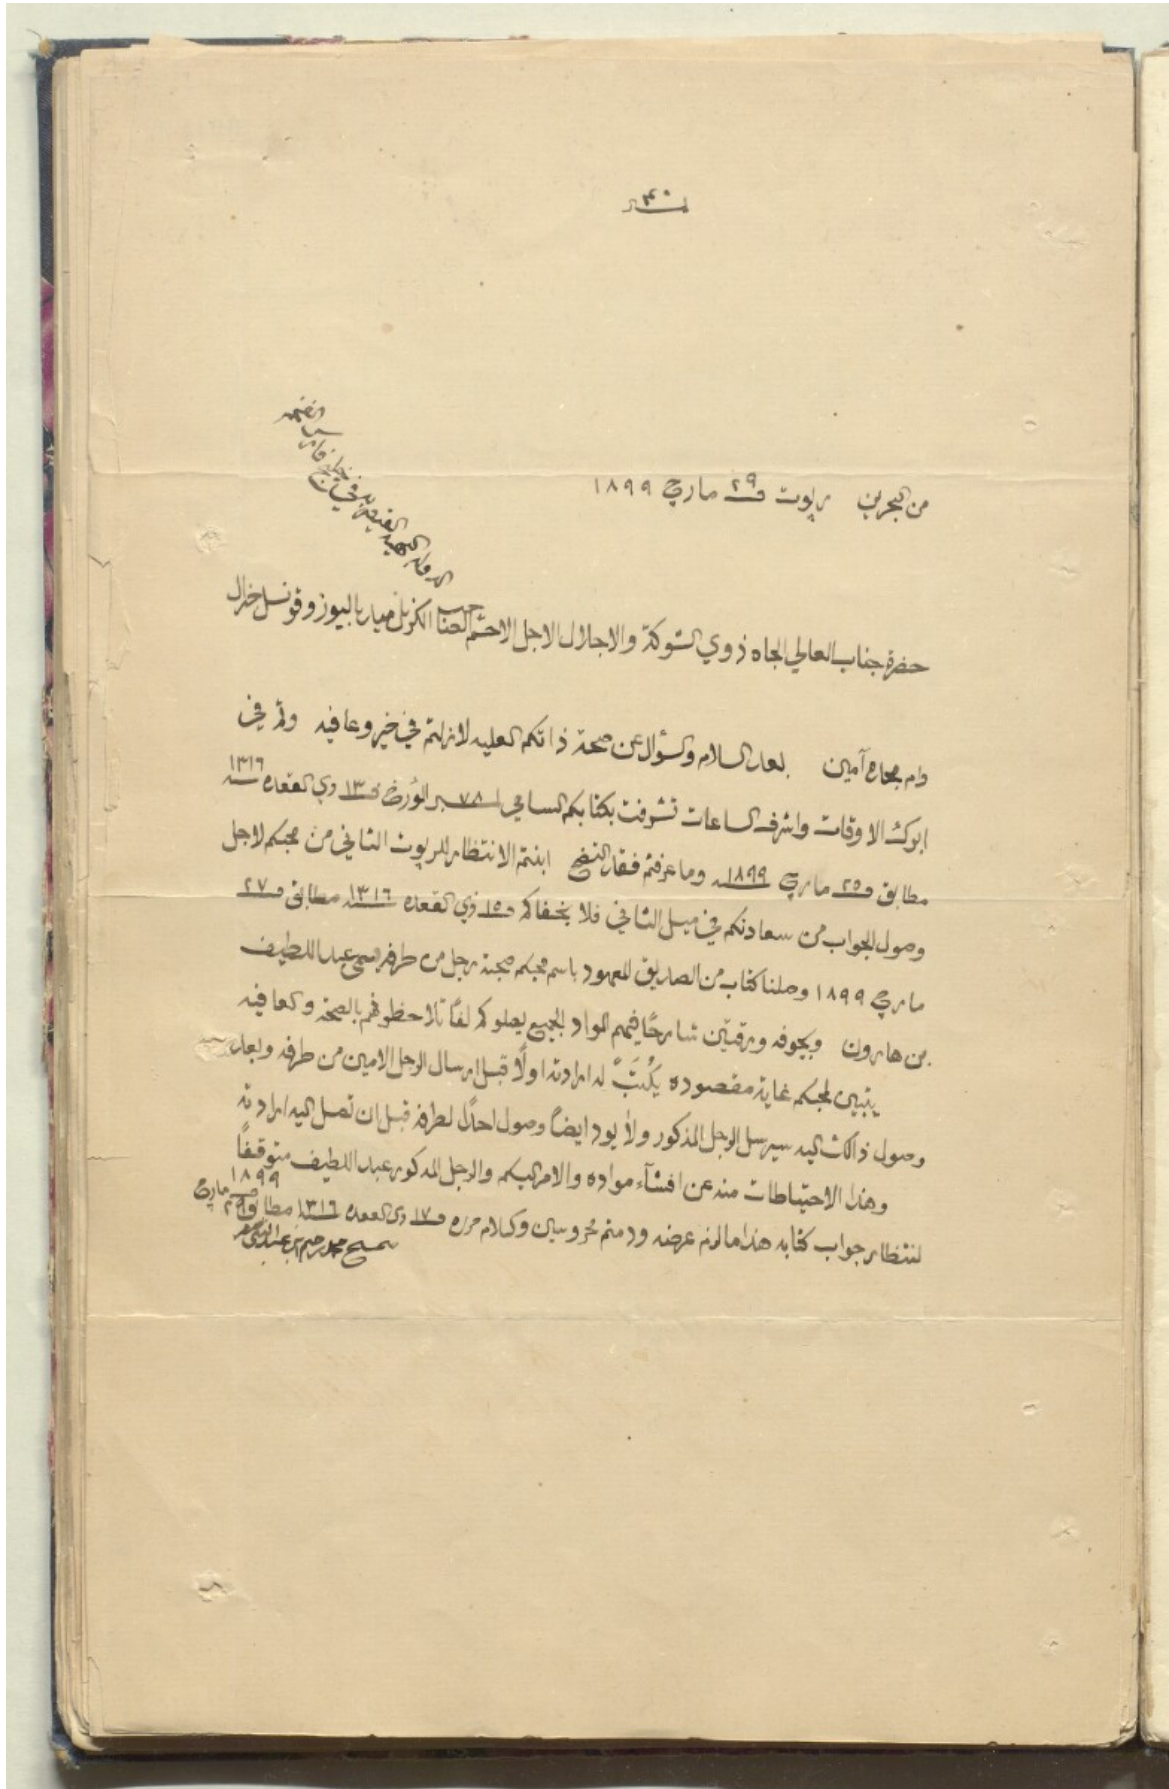 نمبر ٤٠
من البحرين ربوت في ٢٩ مارچ ١٨٩٩
الدولة البهية القيصرية في خليج فارس
حضرة جناب العالي الجاه ذوي الشوكة والاجلال الاجل الاحشم الكرنل ميد باليوز وقونسل جنرال
دام مجده آمين بعد السلام والسؤال عن صحة ذاتكم العليه لا زلتم في خير وعافيه ولم في
ابرك الاوقات واشرف الساعات تشرفت بكتابكم السامي نمبر ٧٨ المؤرخ ١٣ ذي القعده ١٣١٦
مطابق ٢٥ مارچ ١٨٩٩ وما عرفتم فقد اتضح ابنتم الانتظار للربوت الثاني من محبكم لاجل
وصول الجواب من سعادتكم في ميل الثاني فلا يخفاكم ١٥ ذي القعده ١٣١٦ مطابق ٢٧
مارچ ١٨٩٩ وصلنا كتاب من الصديق المعهود باسم محبكم صحبة رجل من طرفه اسمى عبد اللطيف
بن هارون وبجوفه ورقتين شارحًا فيهم المواد الجميع يصلوكم لفًا تلاحظوهم بالصحة والعافيه
يتبين لمحبكم غاية مقصوده يُكْتَبْ له ارادته اولًا قبل ارسال الرجل الامين من طرفه وبعد
وصول ذالك اليه سيرسل الرجل المذكور ولا يود ايضًا وصول احدًا لطرفه قبل ان تصل اليه ارادته
وهذا الاحتياطات منه عن افشآء مواده والامر اليكم والرجل المذكور عبد اللطيف متوقفًا
لنتظار جواب كتابه هذا ما لزم عرضه ودمتم محروسين وكلام حرره ١٧ ذي القعده ١٣١٦ مطابق ٢٩ مارچ ١٨٩٩
صحيح محمد رحيم بن عبد النبي صفر